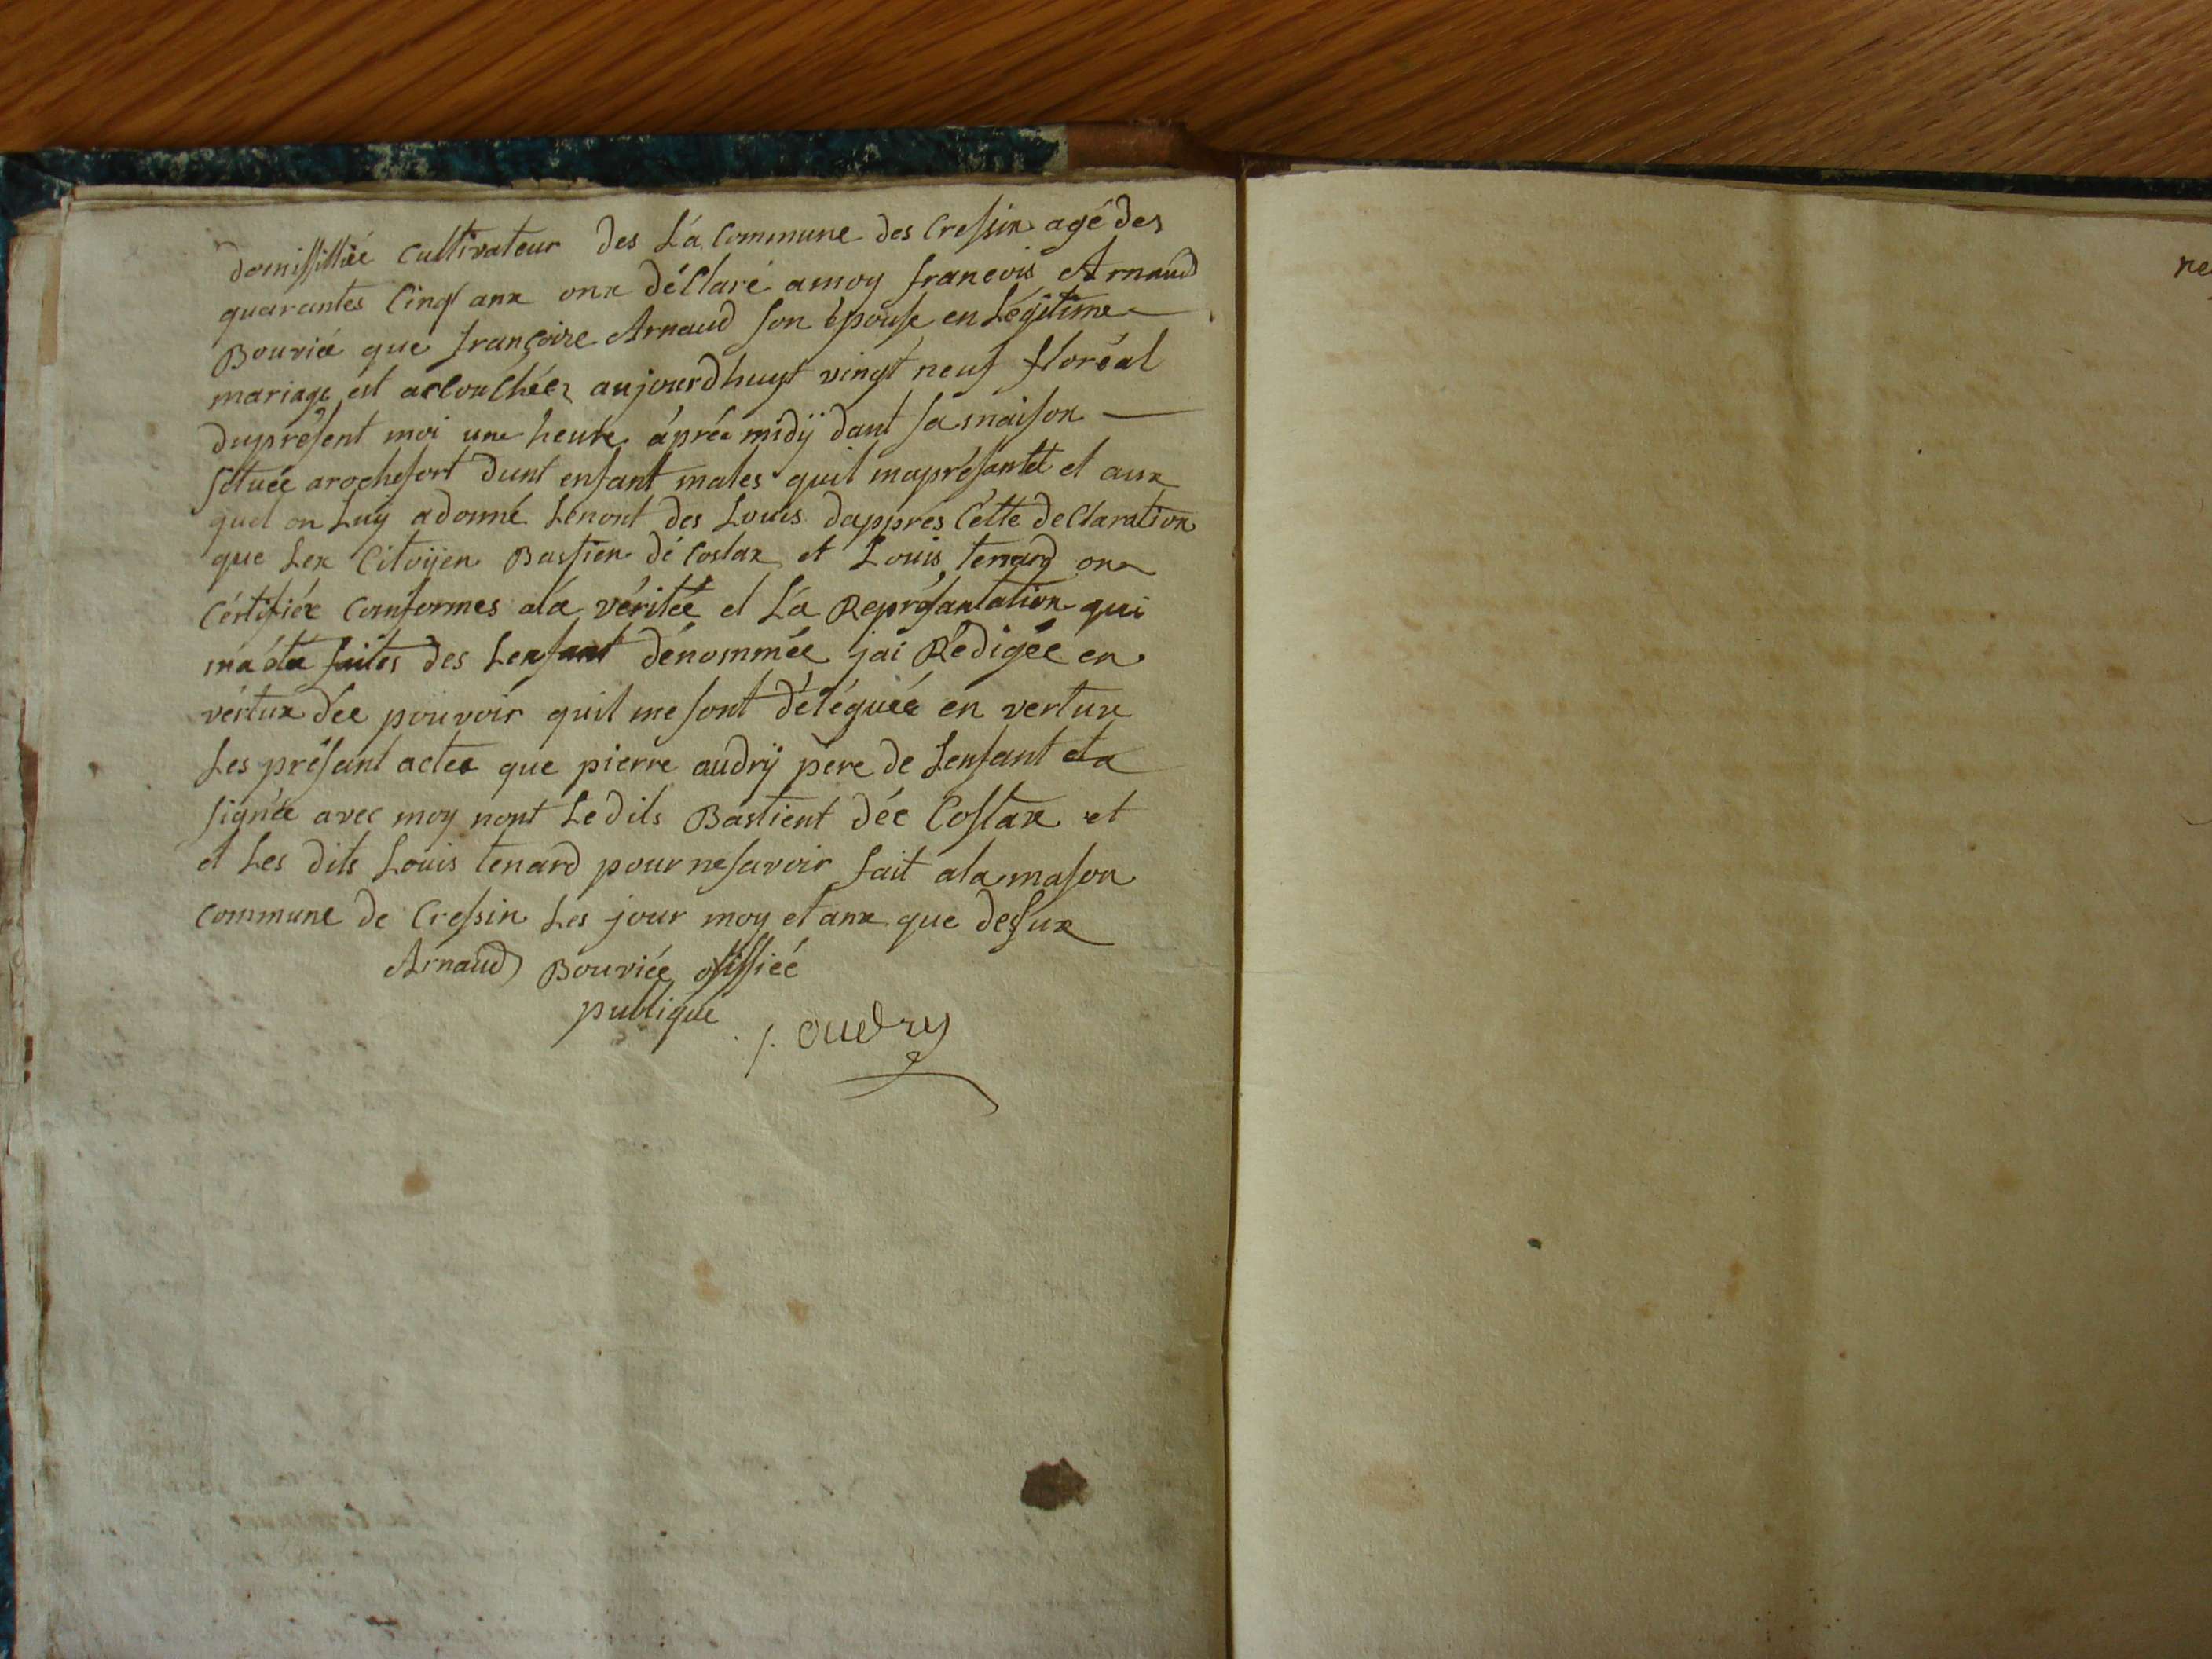 domissilliéé cultivateur des Lá Commune des Cressin agé des
quarantes Cinq anx onx déClaré amoy francois Arnaud
Bouviée que françoize Arnaud son épouse en Légitime
mariage est accouChéez aujourdhuyt vingt neuf floréal
duprésent moi une heure áprée midÿ dant sa maison
scituée arochefort dunt enfant males quil maprésantet et aux
quel on Luy adonné Lenont des Louis dappres Cétte déClaration
que Lex Citoÿen Bastien dé Costax et Louis tenard onx
Cértifiéx Comformes alá véritée et Lá Représantation qui
ma été faites des Lenfant dénommée jai Rédigée en
vértux dée pouvoir quil me sont déléguéé en vertux
Les présant actes que pierre audrÿ père de Lenfant eta
signée avec moy nont Le dits Bastient dée Costax et
et Les dits Louis tenard pour nesavoir fait ala mason
Commune de Cressin Les jour moy et anx que dessux
Arnaud Bouviée offissiéé
publique
p. audry
ne